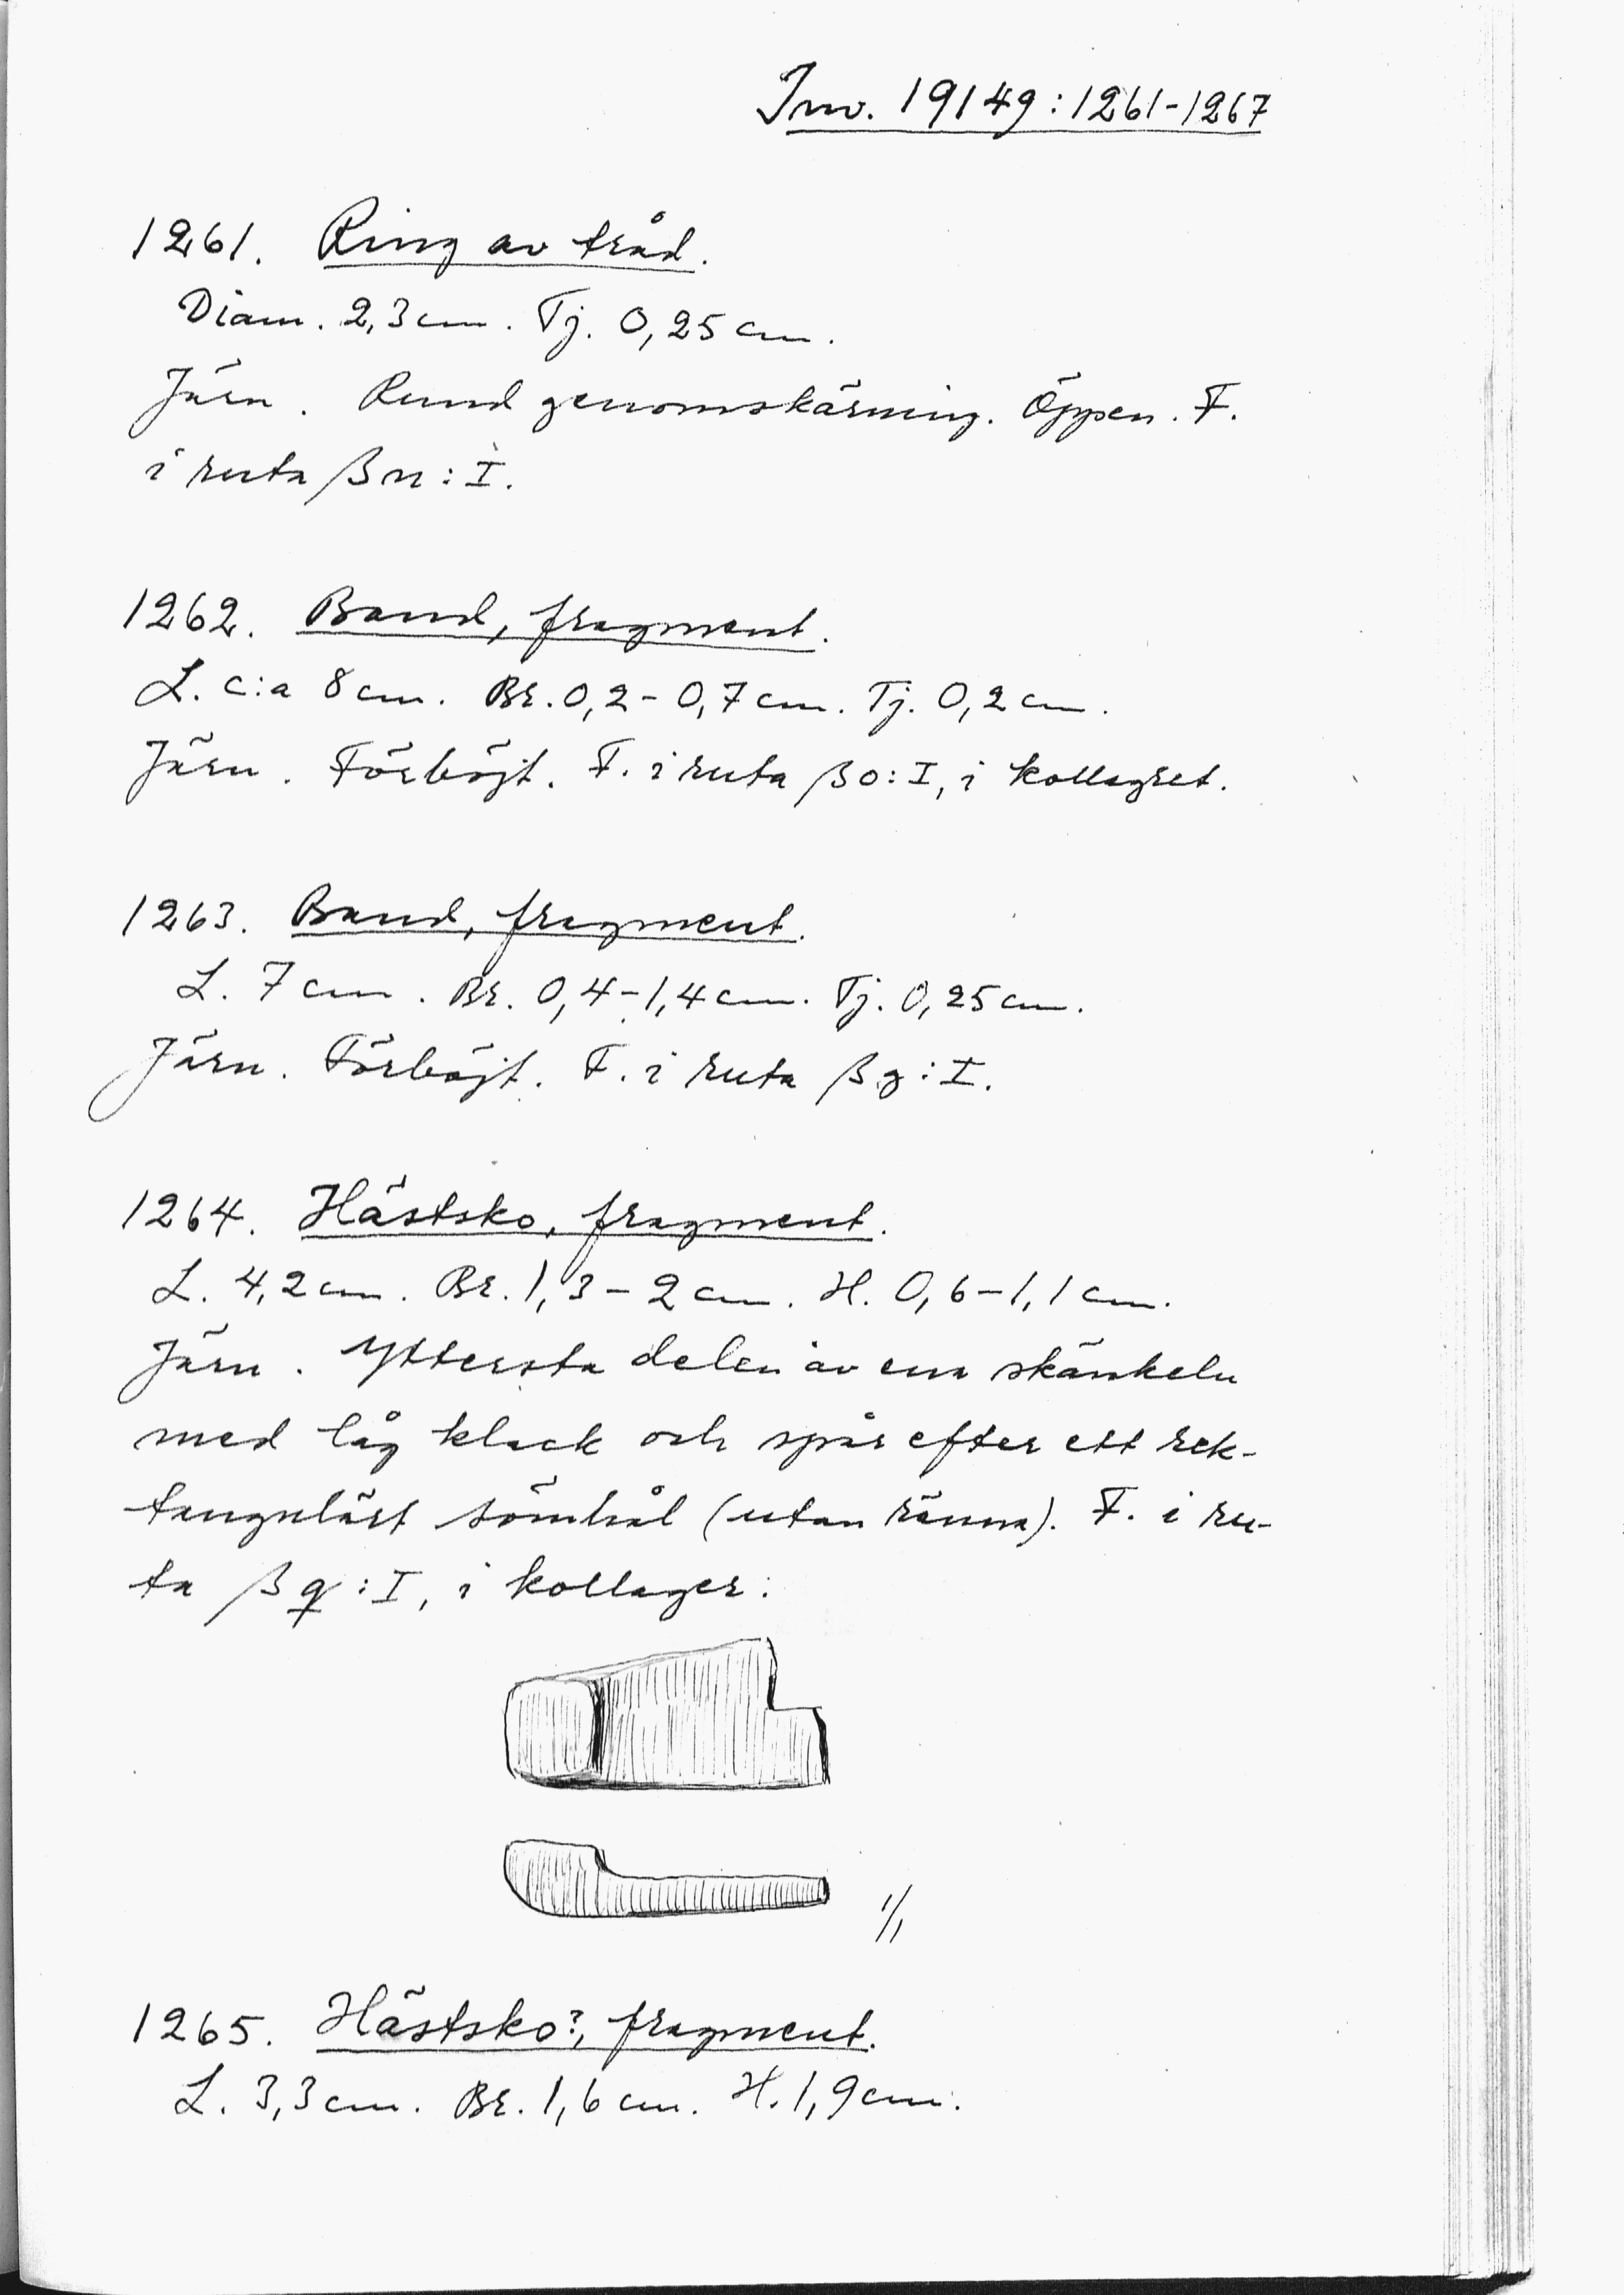 Inv. 19149:1261-1267
1261. Ring av tråd.
Diam. 2,3 cm. Tj. 0,25 cm.
Järn. Rund genomskärning. Öppen. F.
i ruta βn:I.
1262. Band, fragment.
L. c:a 8 cm. Br. 0,2-0,7 cm. Tj. 0,2 cm.
Järn. Förböjt. F. i ruta βo:I, i kollagret.
1263. Band, fragment.
L. 7 cm. Br. 0,4-1,4 cm. Tj. 0,25 cm.
Järn. Förböjt. F. i ruta βg:I.
1264. Hästsko, fragment.
L. 4,2 cm. Br. 1,3-2 cm. H. 0,6-1,1 cm.
Järn. Yttersta delen av ena skänkeln
med låg klack och spår efter ett rek-
tangulärt sömhål (utan ränna). F. i ru-
ta βq:I, i kollager.
1/1
1265. Hästsko?, fragment.
L. 3,3 cm. Br. 1,6 cm. H. 1,9 cm.